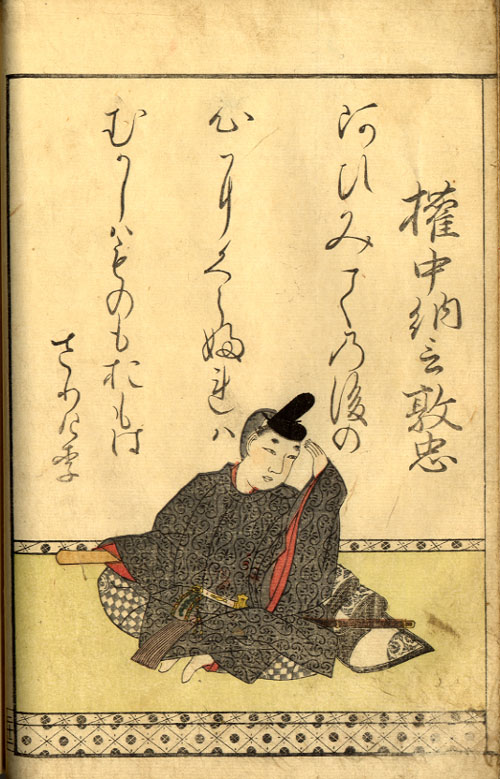 權中納言敦忠
阿ひみて乃後の
心にくら婦連ハ
むかしハものもおもは
さりけ李